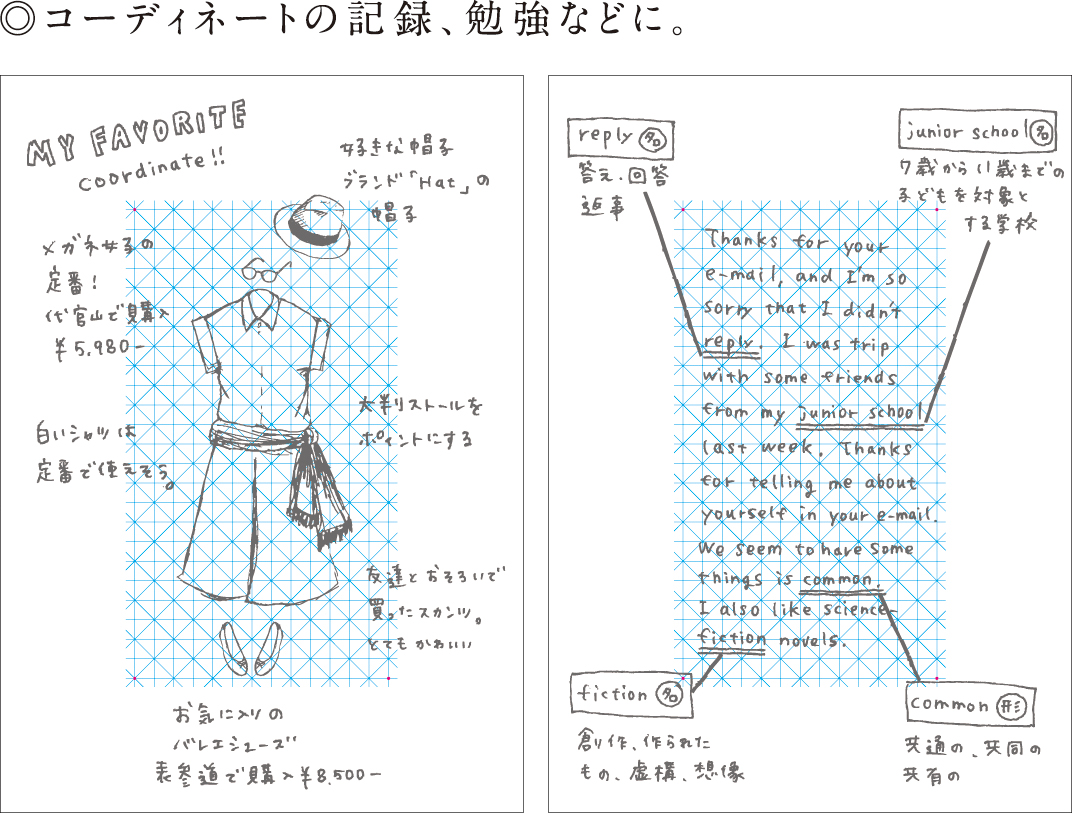 ◎コーディネートの記録、勉強などに。
MY FAVORITE
coordinate!!
好きな帽子
ブランド「Hat」の
帽子
メガネ女子の
定番!
代官山で購入
¥5,980-
大判ストールを
ポイントにする
白いシャツは
定番で使えそう。
友達とおそろいで
買ったスカンツ。
とてもかわいい
お気に入りの
バレエシューズ
表参道で購入¥8,500-
reply 名
答え、回答
返事
junior school 名
7歳から11歳までの
子どもを対象と
する学校
Thanks for your
e-mail, and I'm so
sorry that I didn't
reply. I was trip
with some friends
from my junior school
last week. Thanks
for telling me about
yourself in your e-mail.
We seem to have some
things is common.
I also like science-
fiction novels.
fiction 名
創作、作られた
もの、虚構、想像
common 形
共通の、共同の
共有の